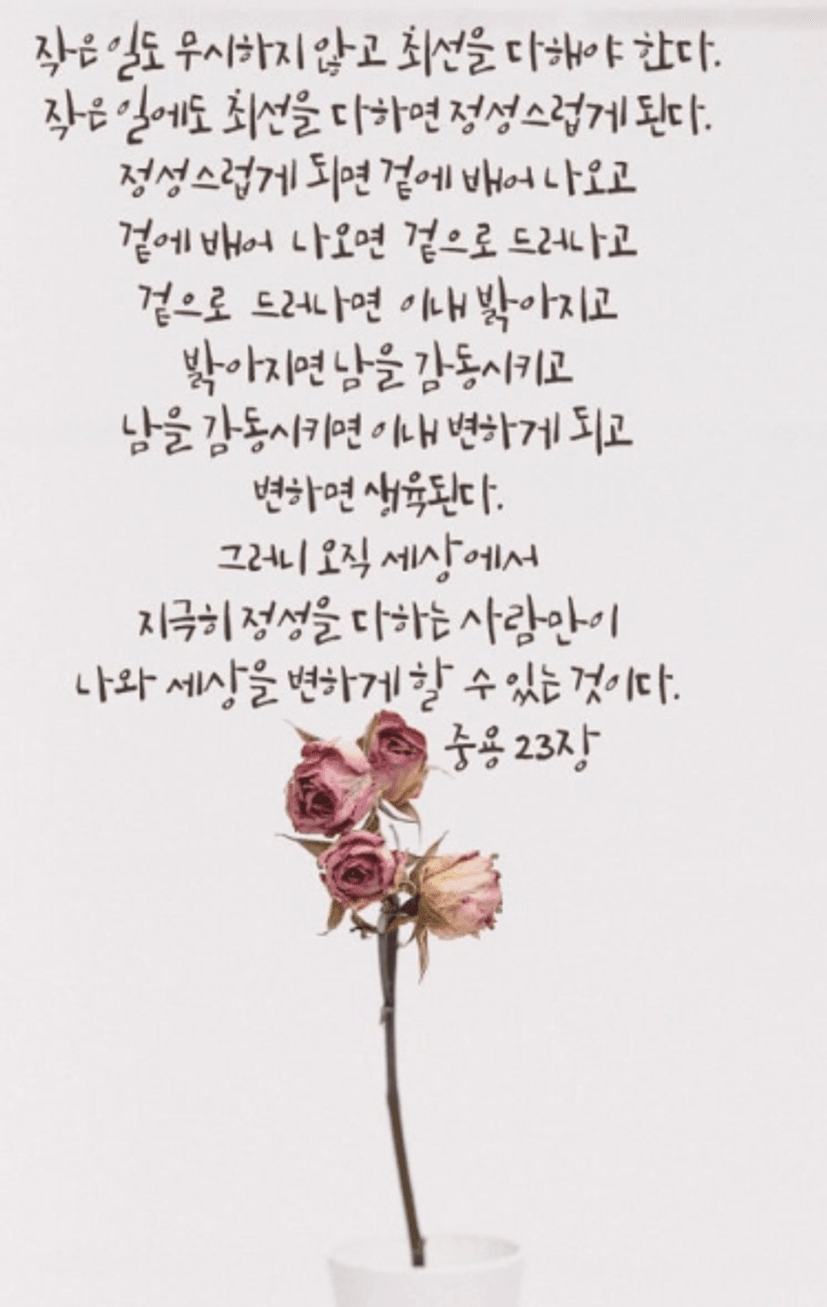 작은 일도 무시하지 않고 최선을 다해야 한다.
작은 일에도 최선을 다하면 정성스럽게 된다.
정성스럽게 되면 겉에 배어 나오고
겉에 배어 나오면 겉으로 드러나고
겉으로 드러나면 이내 밝아지고
밝아지면 남을 감동시키고
남을 감동시키면 이내 변하게 되고
변하면 생육된다.
그러니 오직 세상에서
지극히 정성을 다하는 사람만이
나와 세상을 변하게 할 수 있는 것이다.
중용 23장